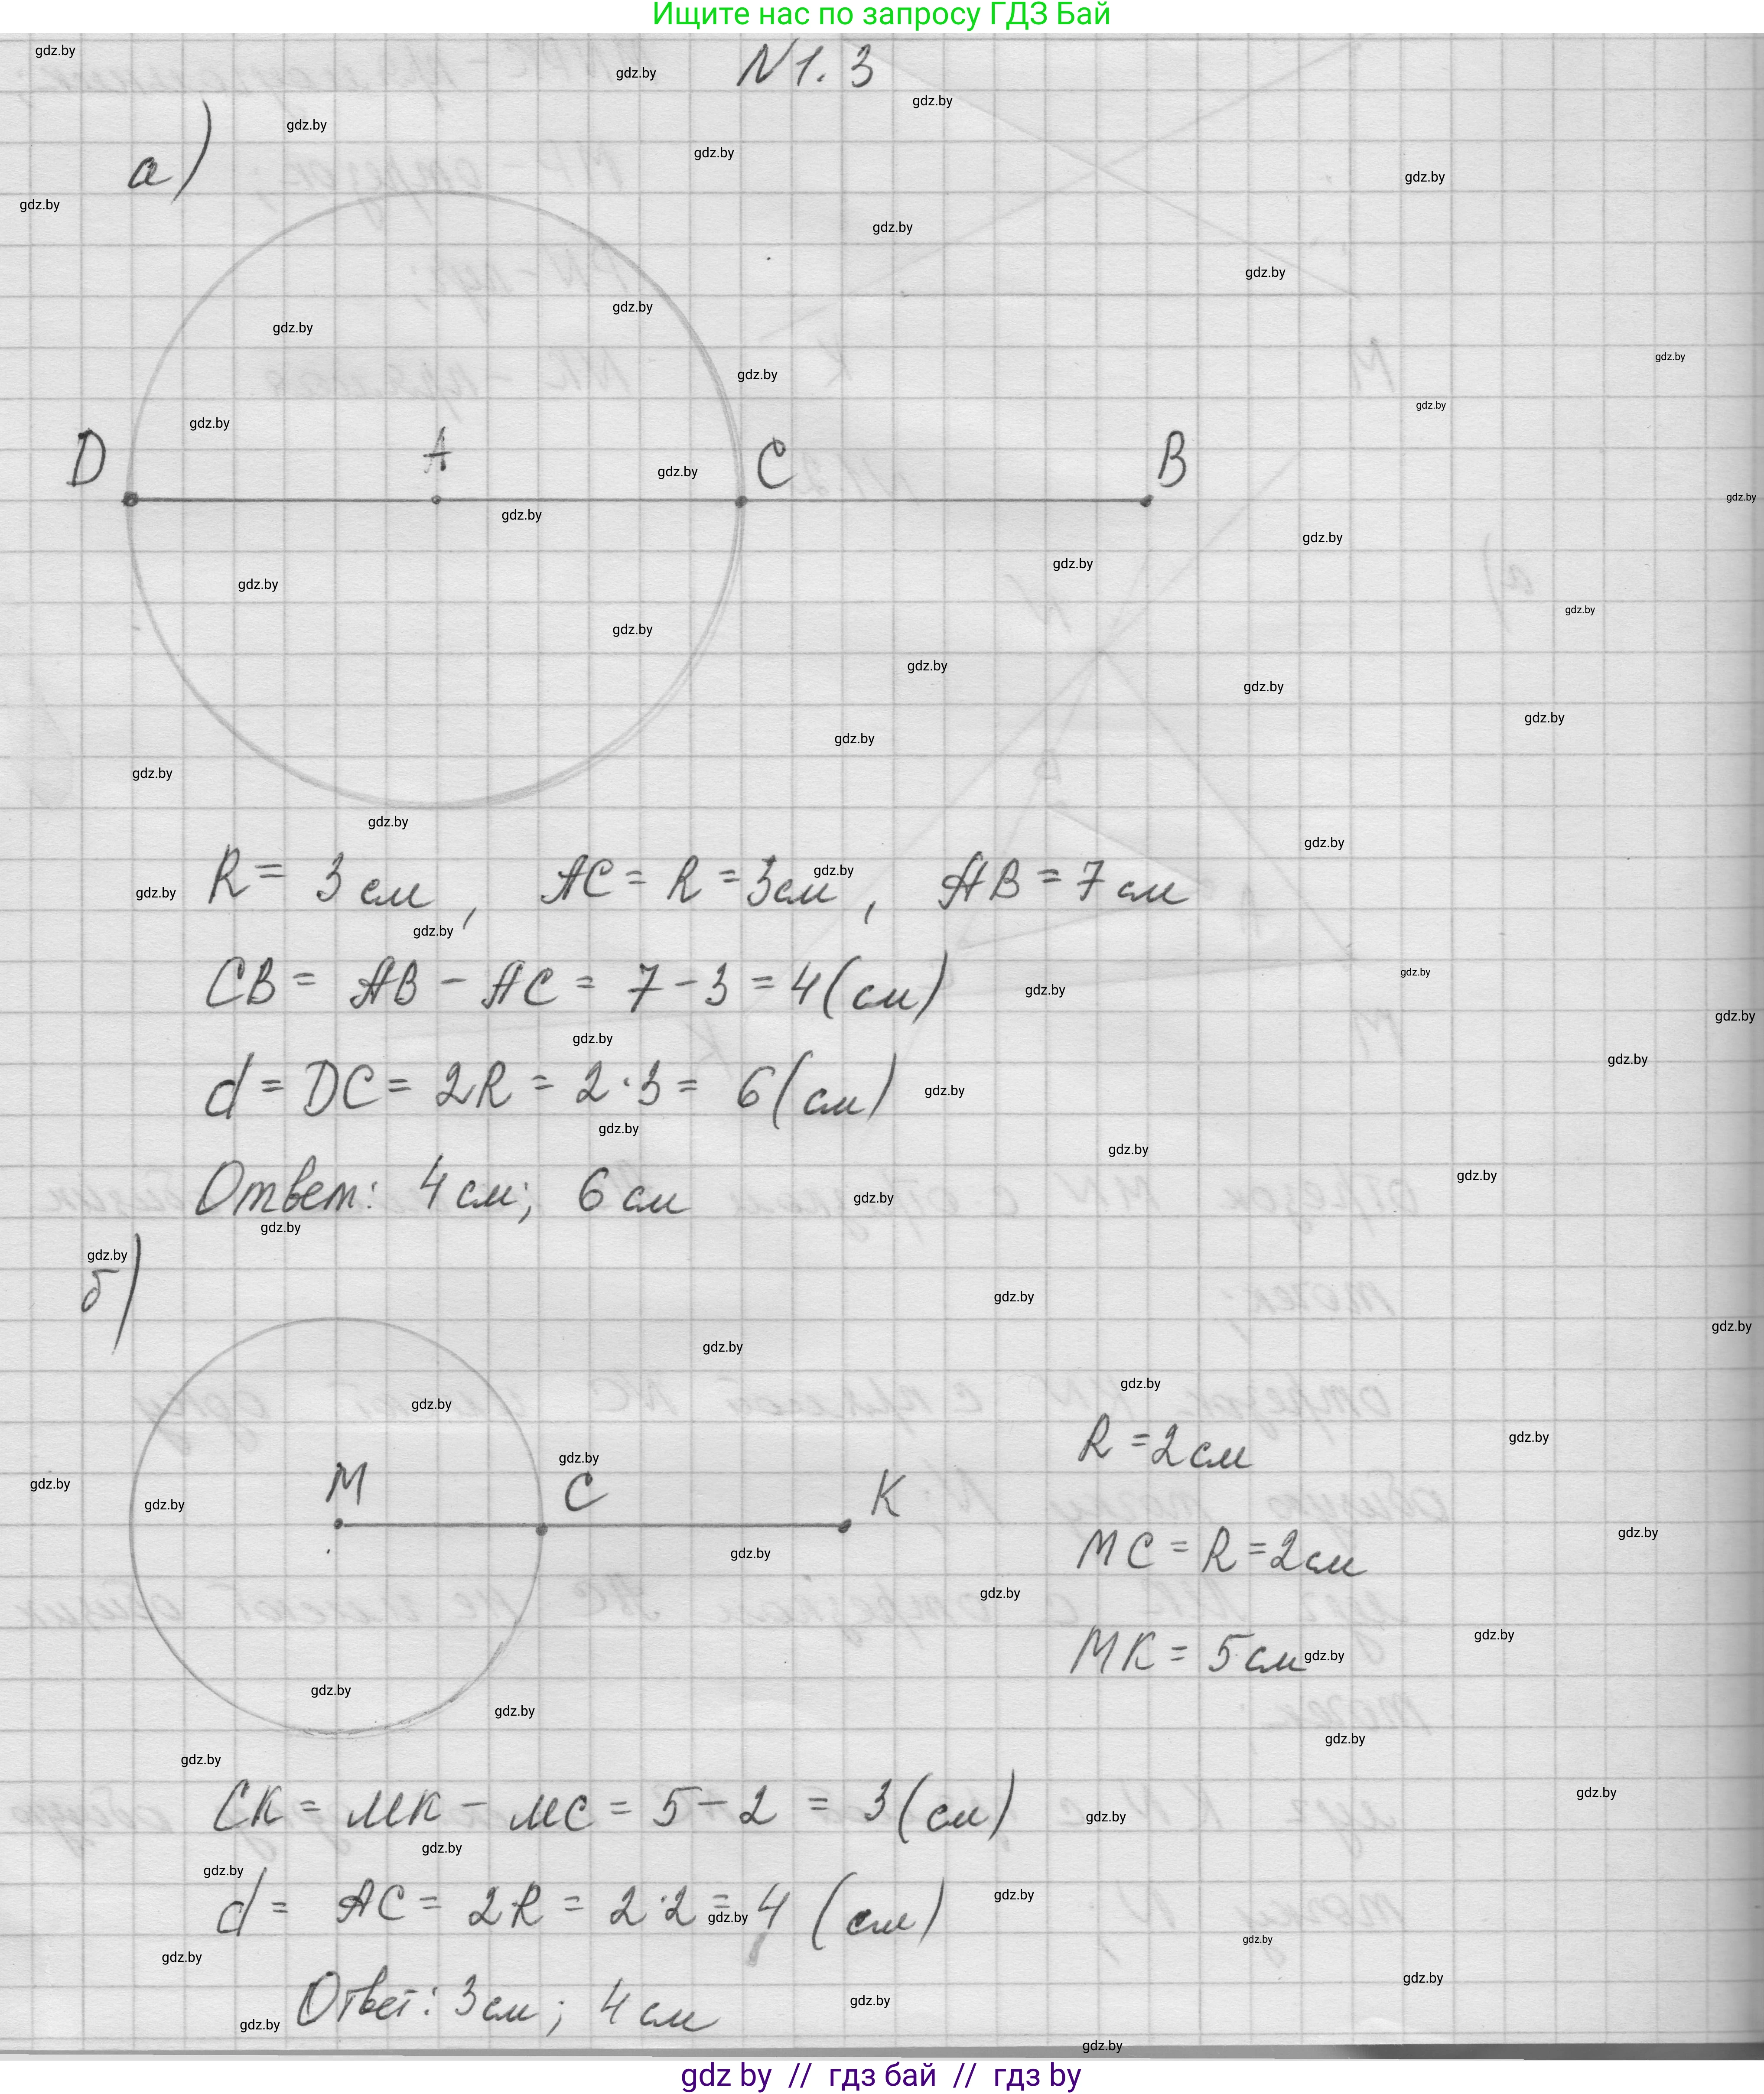 Ищите нас по запросу ГДЗ Бай
N1.3
а)
D A C B
R = 3 см, AC = R = 3 см, AB = 7 см
CB = AB - AC = 7 - 3 = 4 (см)
d = DC = 2R = 2·3 = 6 (см)
Ответ: 4 см; 6 см
б)
M C K
R = 2 см
MC = R = 2 см
MK = 5 см
CK = MK - MC = 5 - 2 = 3 (см)
d = AC = 2R = 2·2 = 4 (см)
Ответ: 3 см; 4 см
gdz.by
gdz by // гдз бай // гдз by